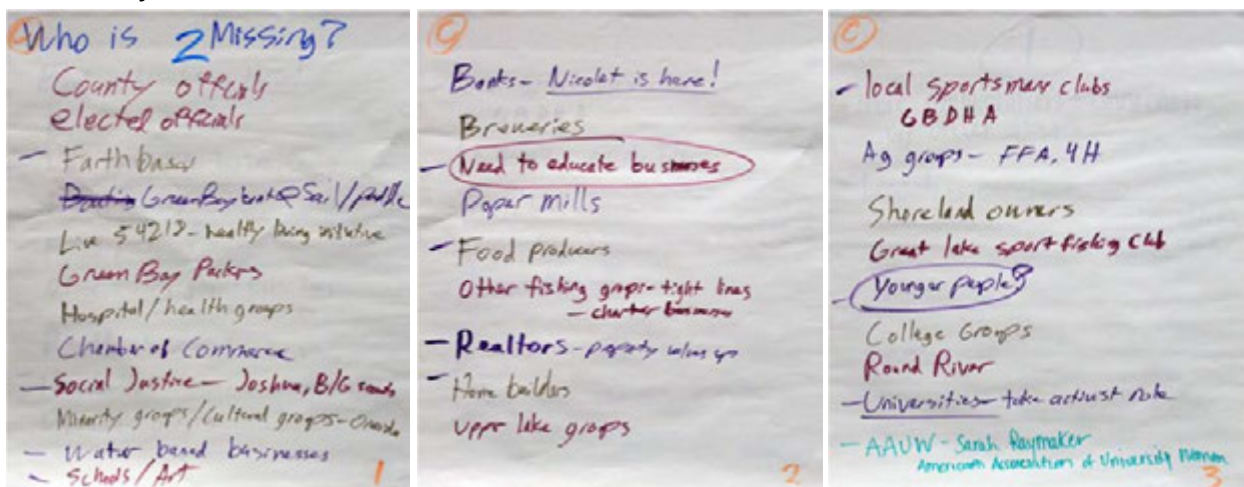 C
Who is 2 Missing?
County officals
elected officials
- Faith based
Green Bay boat Sail/paddle
Live 54218 - healthy living initiative
Green Bay Packers
Hospital/health groups
Chamber of Commerce
- Social Justice - Joshua, B/G
Minority groups/Cultural groups - Oneida
- Water based businesses
- Schools/Art
1
C
Banks - Nicolet is here!
Breweries
- Need to educate businesses
Paper mills
- Food producers
Other fishing groups - tight lines
- charter businesses
- Realtors - property values up
- Home builders
Upper lake groups
2
C
- local Sportsmen clubs
GBDHA
Ag groups - FFA, 4H
Shoreland owners
Great lake sport fishing club
- Younger people?
College Groups
Round River
- Universities - take activist role
- AAUW - Sarah Raymaker
American Association of University Women
3